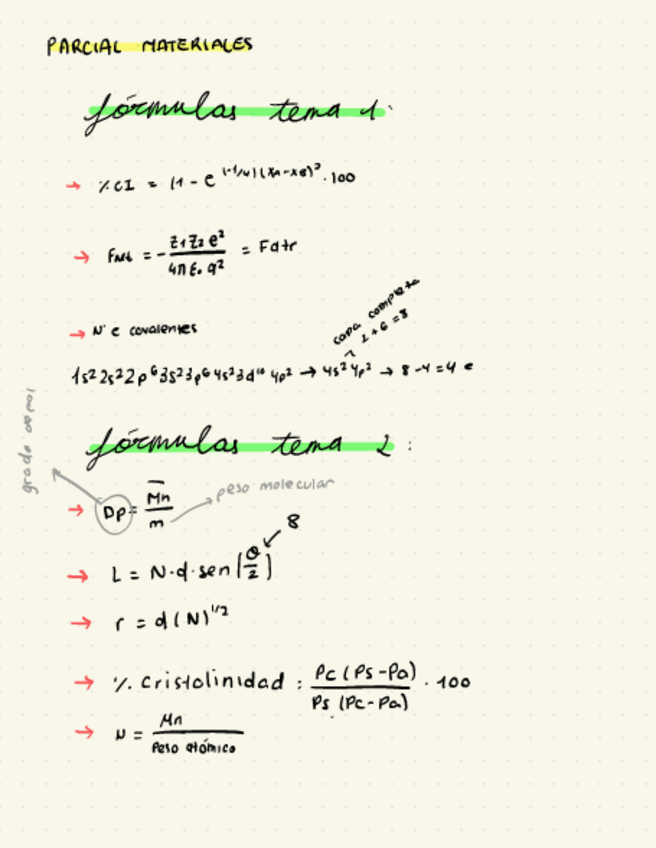 PARCIAL MATERIALES
fórmulas tema 1:
→ % CI = (1 - e^(-1/4)(xA-xB)² · 100
→ Fnet = - Z1Z2 e² / 4π ε₀ a² = Fatr
→ Nº e covalentes
capa completa
2 + 6 = 8
1s² 2s² 2p⁶ 3s² 3p⁶ 4s² 3d¹⁰ 4p² → 4s² 4p² → 8 - 4 = 4 e
fórmulas tema 2 :
→ Dp = M̅n / m
peso molecular
→ L = N · d · sen (θ/2)
→ r = d (N)^1/2
→ % cristalinidad : Pc (Ps - Pa) / Ps (Pc - Pa) · 100
→ N = Mn / Peso atómico